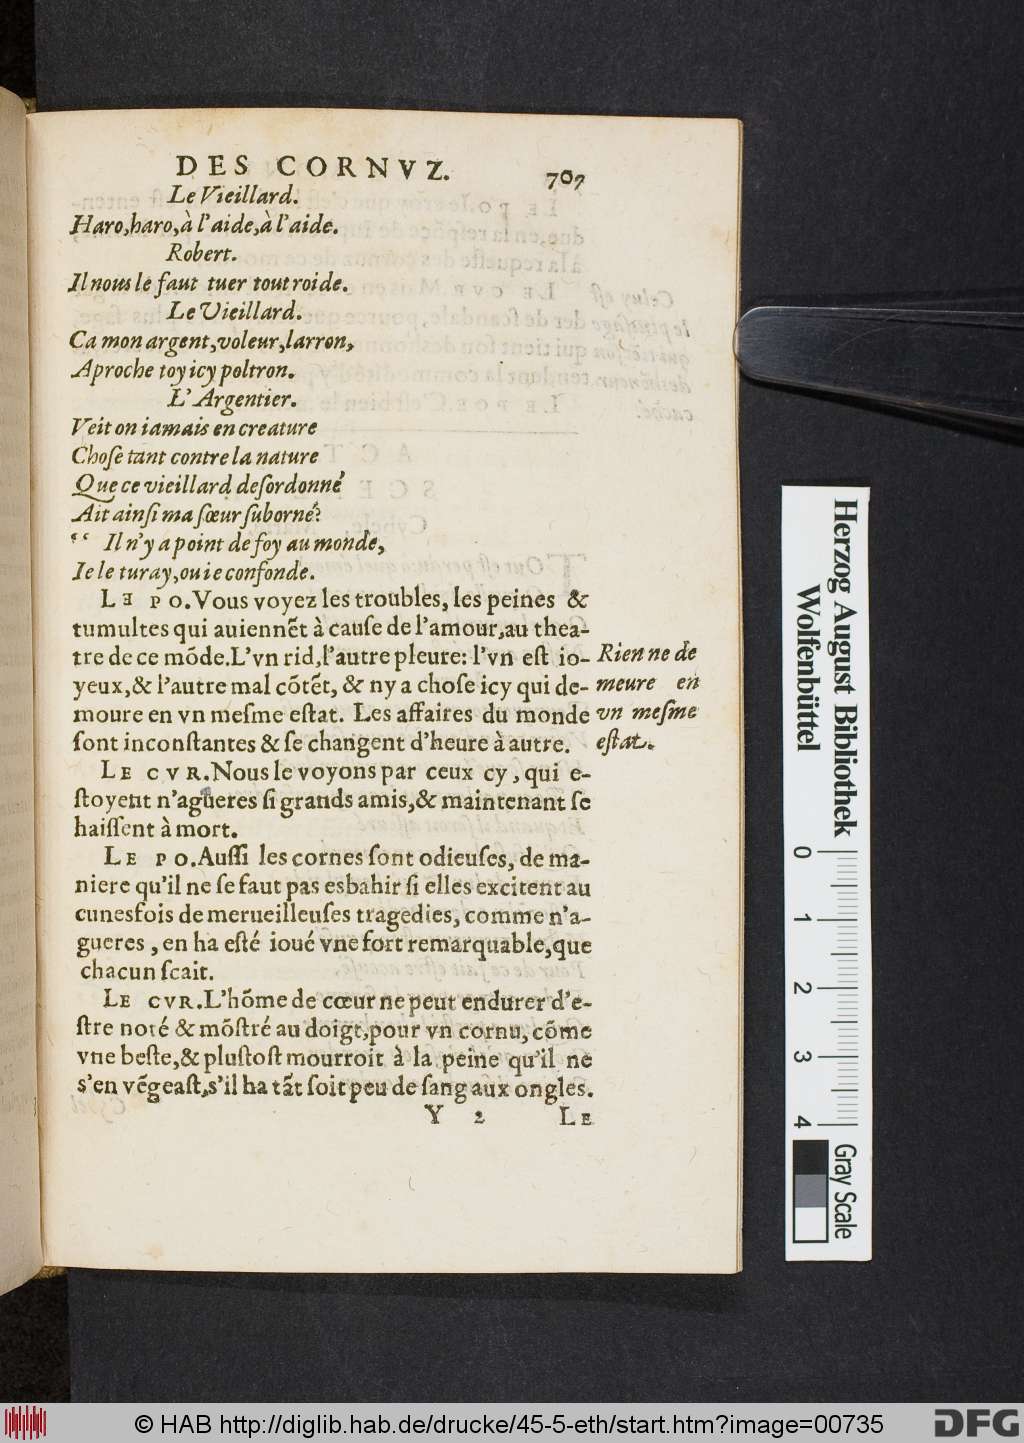 DES CORNVZ. 707
Le Vieillard.
Haro,haro,à l'aide,à l'aide.
Robert.
Il nous le faut tuer tout roide.
Le Vieillard.
Ca mon argent,voleur,larron,
Aproche toy icy poltron.
L'Argentier.
Veit on iamais en creature
Choſe tant contre la nature
Que ce vieillard deſordonné
Ait ainſi ma ſœur ſuborné?
“ Il n'y a point de foy au monde,
Ie le turay,ou ie confonde.
LE PO.Vous voyez les troubles, les peines &
tumultes qui auiennẽt à cauſe de l'amour,au thea-
tre de ce mõde.L'vn rid,l'autre pleure: l'vn eſt io-
yeux,& l'autre mal cõtẽt, & ny a choſe icy qui de-
moure en vn meſme eſtat. Les affaires du monde
ſont inconſtantes & ſe changent d'heure à autre.
Rien ne de
meure en
vn meſme
eſtat.
LE CVR.Nous le voyons par ceux cy, qui e-
ſtoyent n'agueres ſi grands amis,& maintenant ſe
haiſſent à mort.
LE PO.Auſſi les cornes ſont odieuſes, de ma-
niere qu'il ne ſe faut pas esbahir ſi elles excitent au
cunesfois de merueilleuſes tragedies, comme n'a-
gueres, en ha eſté ioué vne fort remarquable,que
chacun ſcait.
LE CVR.L'hõme de cœur ne peut endurer d'e-
ſtre noté & mõſtré au doigt,pour vn cornu, cõme
vne beſte,& pluſtoſt mourroit à la peine qu'il ne
s'en vẽgeaſt,s'il ha tãt ſoit peu de ſang aux ongles.
Y 2 LE
Herzog August Bibliothek
Wolfenbüttel
0 1 2 3 4
Gray Scale
© HAB http://diglib.hab.de/drucke/45-5-eth/start.htm?image=00735
DFG